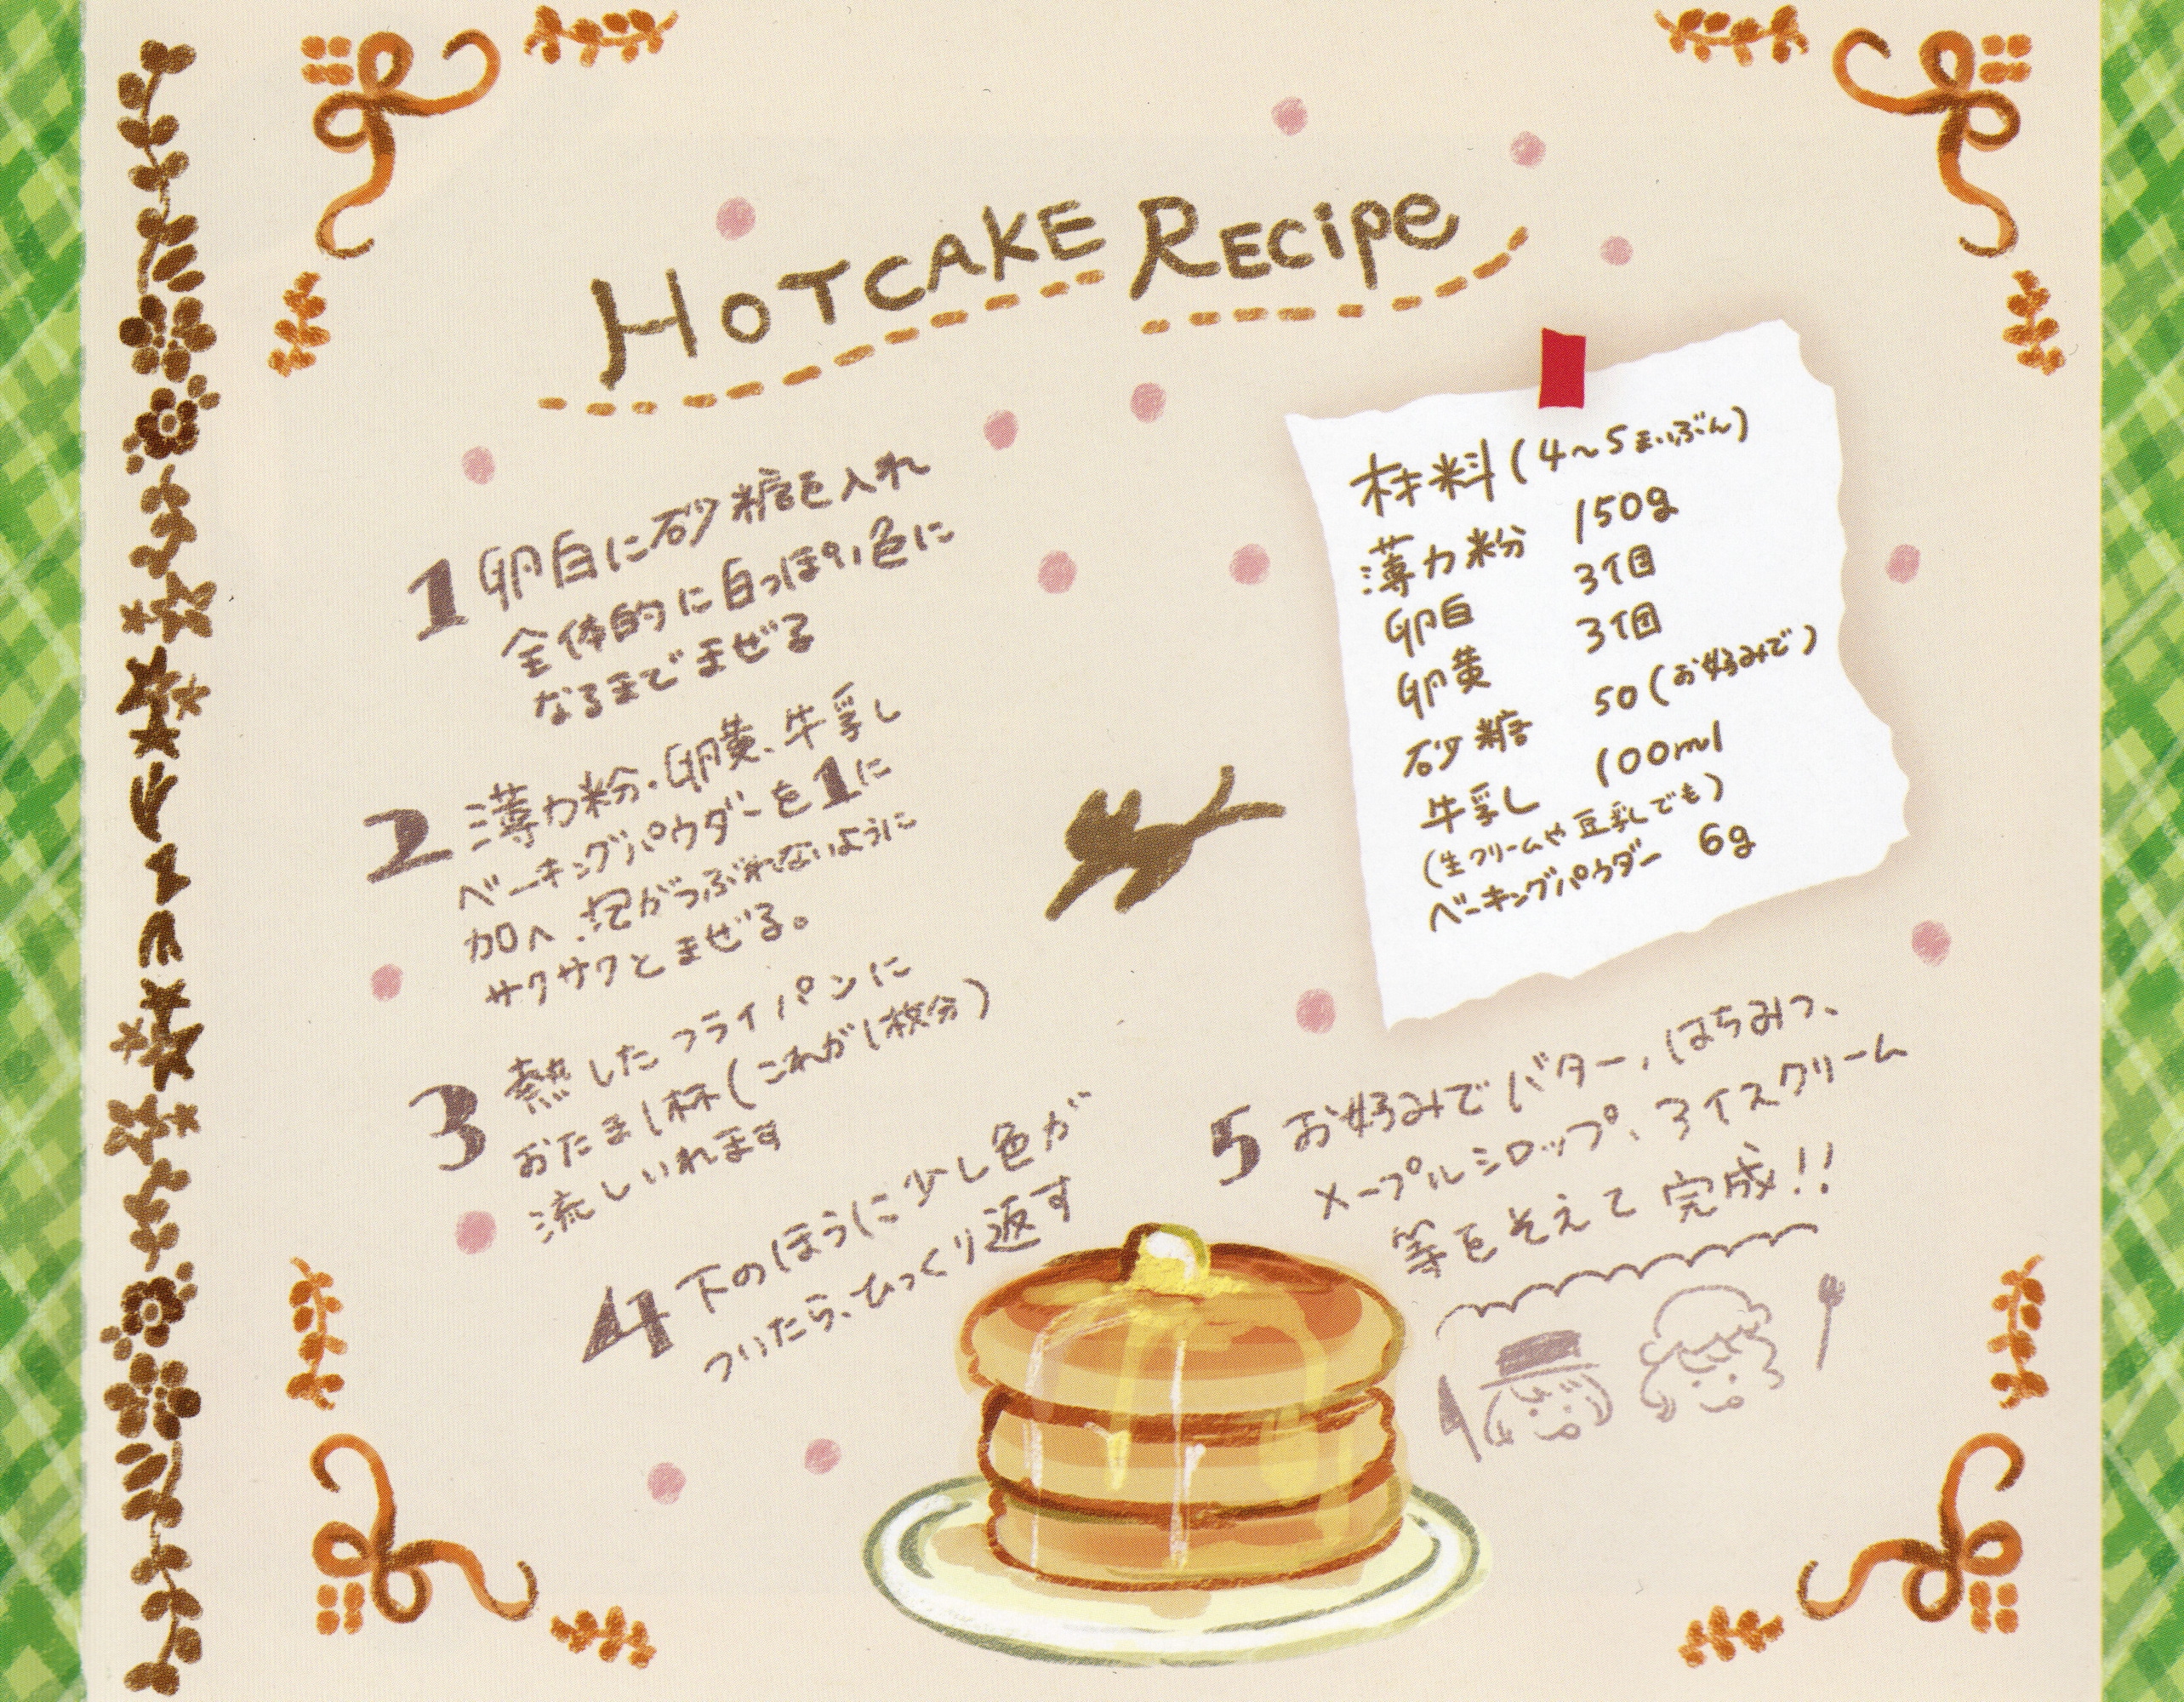 HOTCAKE RECipe
材料(4〜5まいぶん)
薄力粉 150g
卵白 3個
卵黄 3個
砂糖 50(お好みで)
牛乳 100ml
(生クリームや豆乳でも)
ベーキングパウダー 6g
1 卵白に砂糖を入れ
全体的に白っぽい色に
なるまでまぜる
2 薄力粉・卵黄、牛乳
ベーキングパウダーを1に
加へ、泡がつぶれないように
サクサクとまぜる。
3 熱したフライパンに
おたま1杯(これが1枚分)
流しいれます
4 下のほうに少し色が
ついたら、ひっくり返す
5 お好みでバター、はちみつ、
メープルシロップ、アイスクリーム
等をそえて完成!!